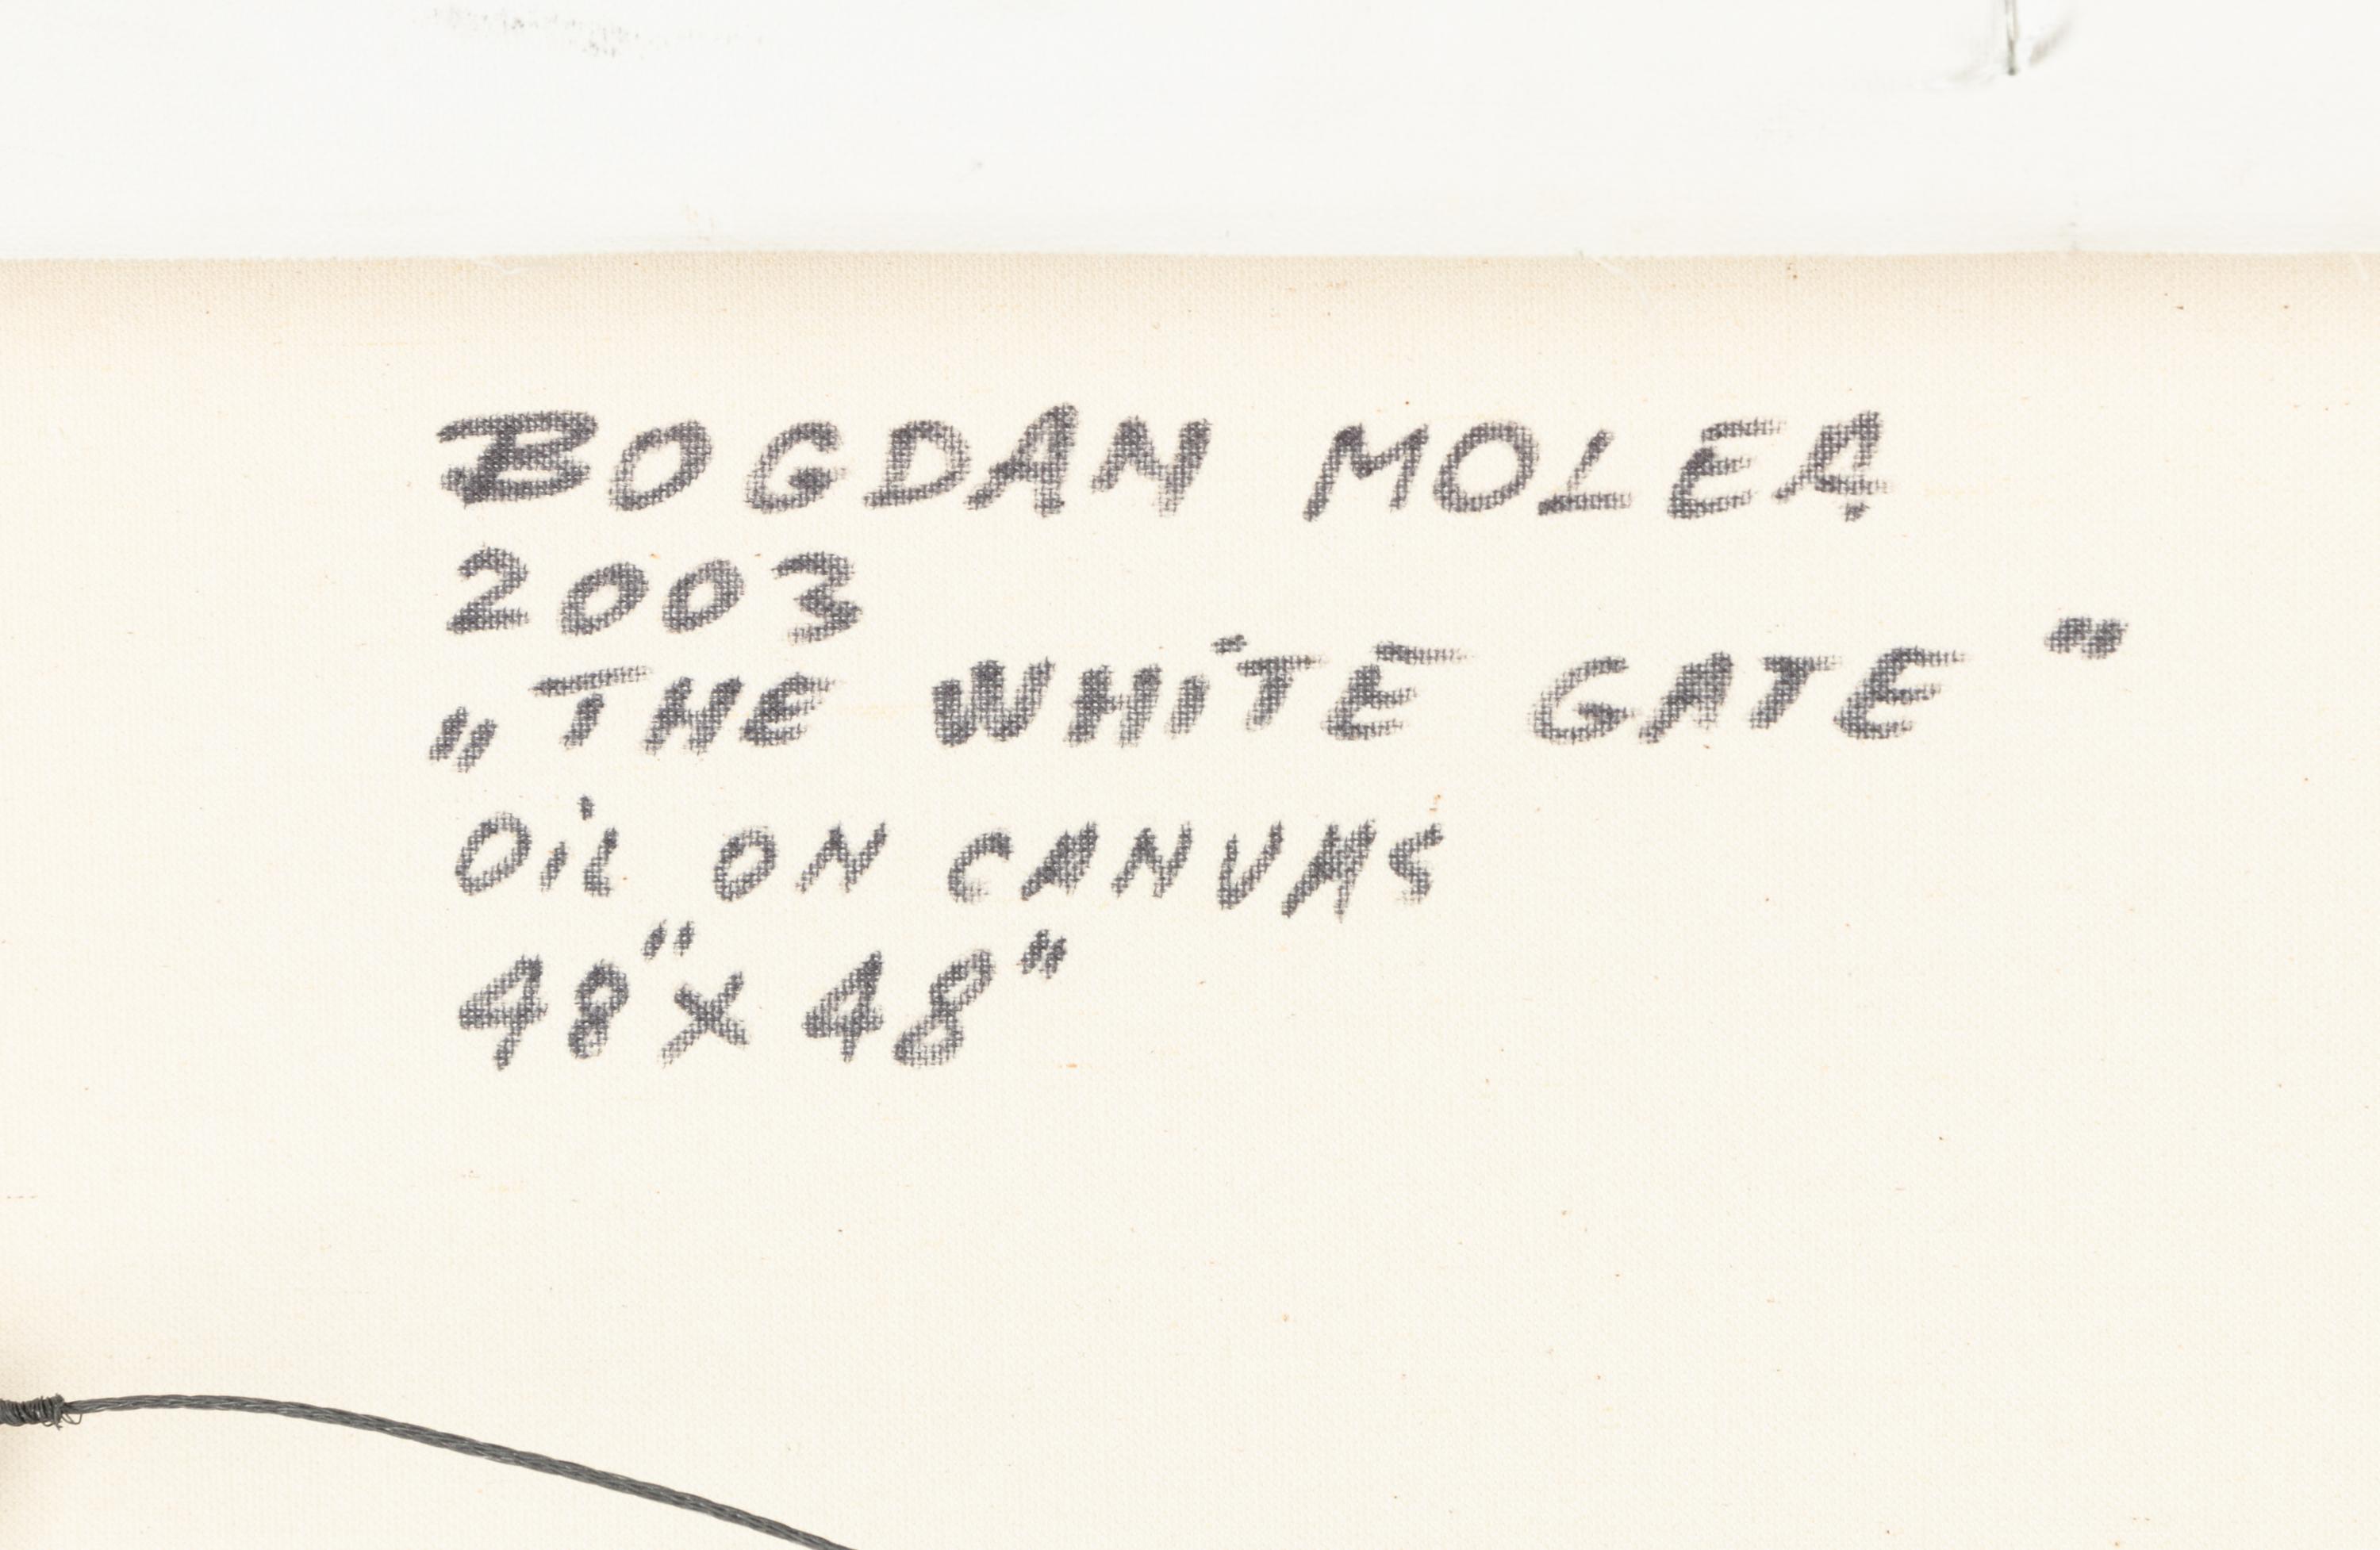 BOGDAN MOLEA
2003
„THE WHiTE GATE"
OiL ON CANVAS
48"x 48"